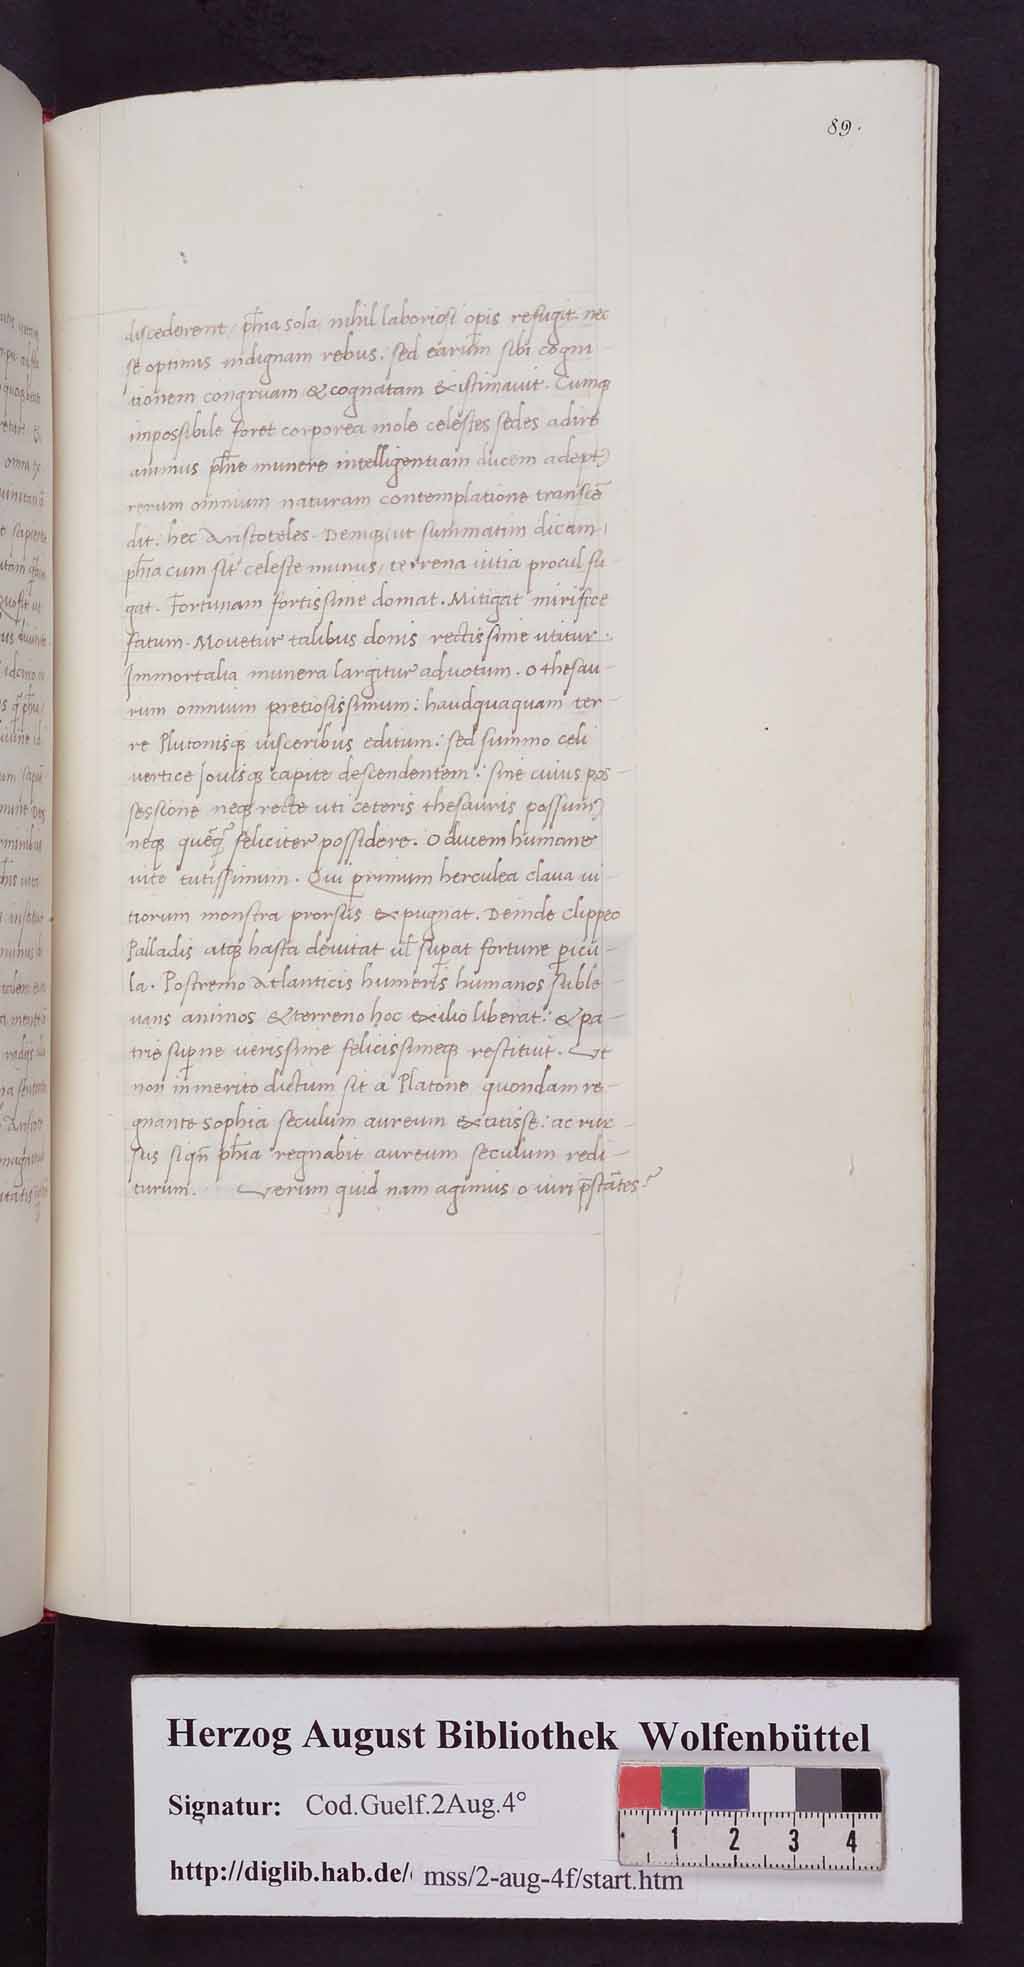 89.
discederent, phīa sola nihil laboriosi opis refugit. nec
se optimis indignam rebus: sed earum sibi cogni-
tionem congruam & cognatam existimauit. Cumq
impossibile foret corporea mole celestes sedes adire
animus phīe munere intelligentiam ducem adept9
rerum omnium naturam contemplatione transcē
dit. hec Aristoteles. Deniq, ut summatim dicam,
phīa cum sit celeste munus, terrena uitia procul fu-
gat. Fortunam fortissime domat. Mitigat mirifice
fatum. Mouetur talibus donis rectissime utitur.
Immortalia munera largitur aduotum. O thesau-
rum omnium pretiosissimum: haudquaquam ter-
re Plutonisq uisceribus editum: sed summo celi
vertice Jouisq capite descendentem: sine cuius pos-
sessione neq recte uti ceteris thesauris possum9
neq quēq feliciter possidere. O ducem humane
uite tutissimum. Qui primum herculea claua ui-
tiorum monstra prorsus expugnat. Deinde clippeo
Palladis atq hasta deuitat ul supat fortune picu-
la. Postremo Atlanticis humeris humanos suble-
uans animos & terreno hoc exilio liberat: & pa-
trie supne uerissime felicissimeq restituit. Ut
non inmerito dictum sit a Platone quondam re-
gnante sophia seculum aureum extitisse: ac rur-
sus siqn phīa regnabit aureum seculum redi-
turum. Verum quid nam agimus o uiri pstātes?
Herzog August Bibliothek Wolfenbüttel
Signatur: Cod.Guelf.2Aug.4°
http://diglib.hab.de/ mss/2-aug-4f/start.htm
1 2 3 4